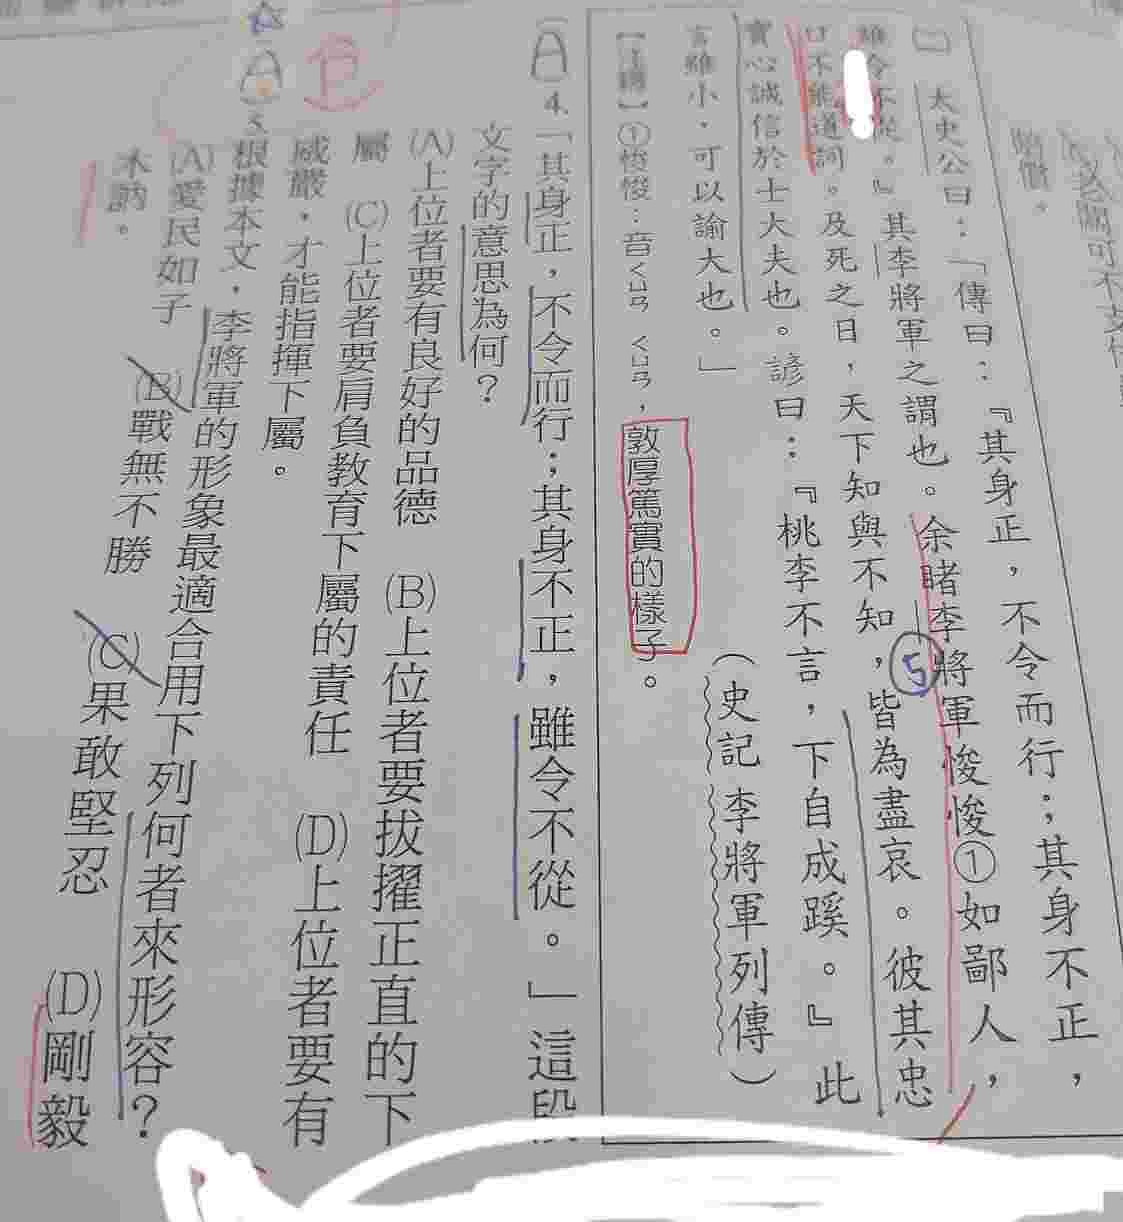 賠償。
(二) 太史公曰：「傳曰：『其身正，不令而行；其身不正，
雖令不從。』其李將軍之謂也。余睹李將軍悛悛①如鄙人，
口不能道詞。及死之日，天下知與不知，皆為盡哀。彼其忠
實心誠信於士大夫也。諺曰：『桃李不言，下自成蹊。』此
言雖小，可以諭大也。」
（史記李將軍列傳）
【注釋】①悛悛：音ㄑㄩㄋ ㄑㄩㄋ，敦厚篤實的樣子。
5
(A) 4.「其身正，不令而行；其身不正，雖令不從。」這段
文字的意思為何？
(A)上位者要有良好的品德 (B)上位者要拔擢正直的下
屬 (C)上位者要肩負教育下屬的責任 (D)上位者要有
威嚴，才能指揮下屬。
(A) 5.根據本文，李將軍的形象最適合用下列何者來形容？
(A)愛民如子 (B)戰無不勝 (C)果敢堅忍 (D)剛毅
木訥。